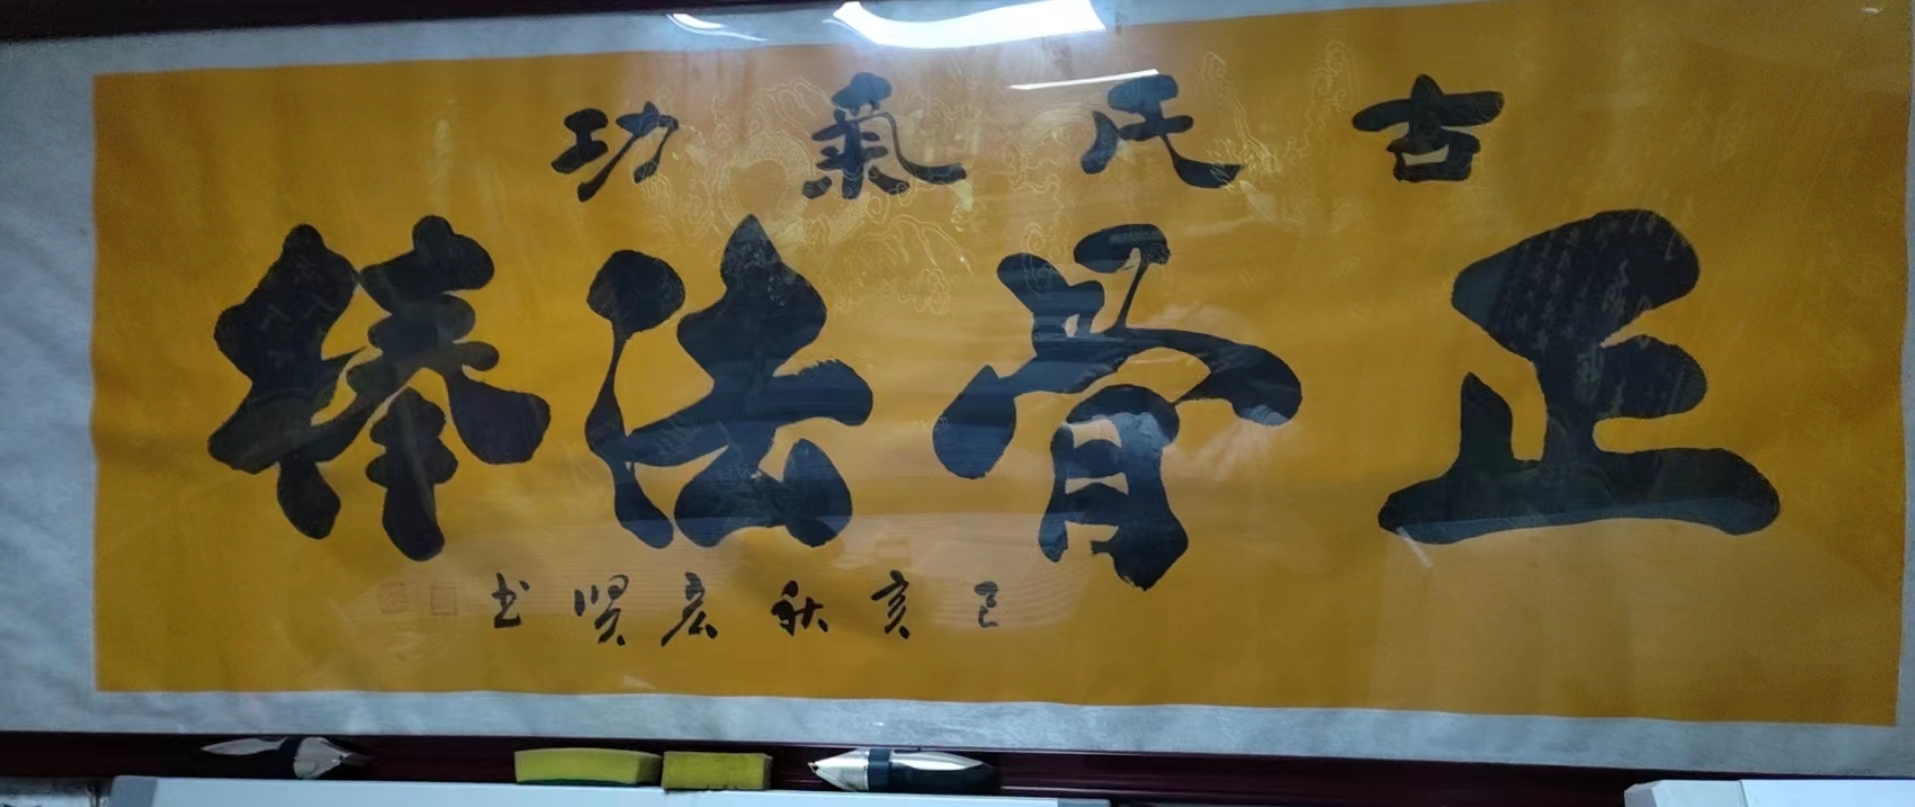 古氏氣功
正骨法棒
己亥秋宏贤书